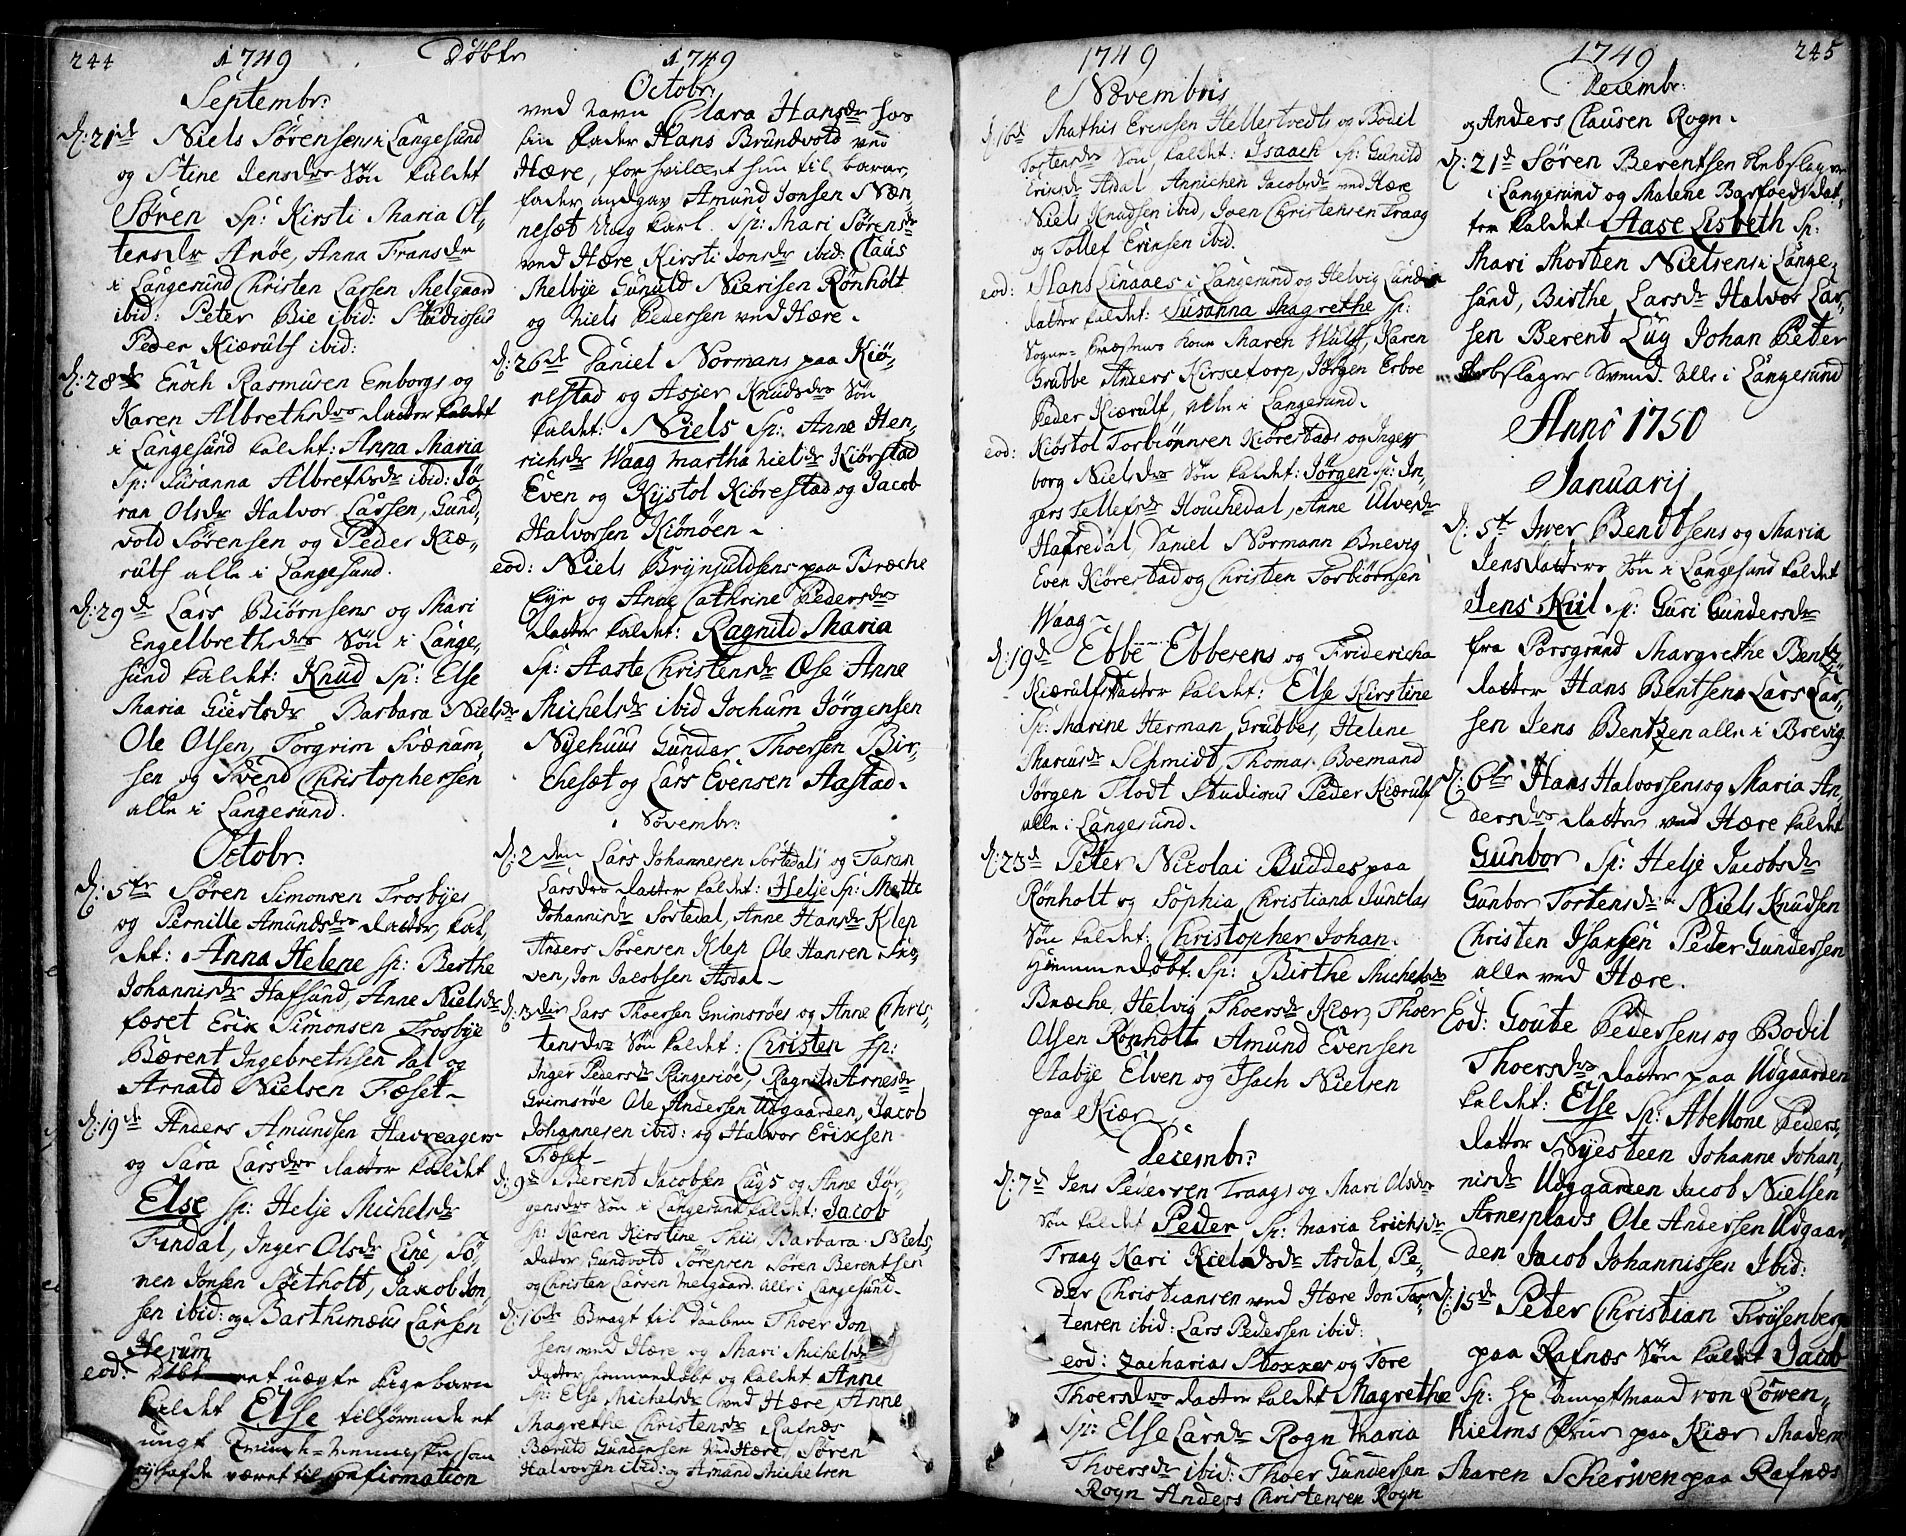 244 1749 Döbte 1749
Septembr:
D: 21de Niels Sørensens i Langesund
og Stine Jensdrs Søn kaldet
Søren Sp: Kirsti Maria Ot,
tensdr Arøe, Anna Fransdr
i Langesund Christen Larsen Melgaard
ibid: Peter Bie ibid: Studiosus
Peder Kiærulf ibid:
D: 28de Enoch Rasmusen Emborgs og
Karen Albrethsdrs datter
i Langesund kaldet: Anna Maria
Sp: Susanna Albrethsdr ibid: Sø,
ren Olsdr Halvor Larsen, Gund,
vold Sørensen og Peder Kiæ,
rulf alle i Langesund.
D: 29de Lars Biørnsens og Mari
Engelbrethsdrs Søn i Lange,
sund kaldet: Knud Sp: Else
Maria Giertsdr Barbara Nielsdr
Ole Olsen, Torgrim Svænum,
sen og Svend Christophersen
alle i Langesund.
Octobr:
D: 5te Søren Simonsen Trosbyes
og Pernille Amundsdrs datter, kal,
det: Anna Helene Sp: Berthe
Johannisdr Hafsund, Anne Nielsdr
Fæset Erik Simonsen Trosbye
Bærent Ingebrethsen Dal og
Arnald Nielsen Fæset
D: 19de Anders Amundsen Havreagers
og Sara Larsdrs datter kaldet
Else Sp: Helje Michelsdr
Findal, Inger Olsdr Eine, Sø,
ren Jonsen Søetholt, Jakob Jon,
sen ibid: og Barthimæus Larsen
Herum
eod: et uægte Pigebarn
kaldet Else tilhørende et
ungt Qvinde-Menneske som
ey hafde været til Confirmation
Octobr:
ved navn Clara Hansdr hos
sin fader Hans Brundvold ved
Hære, for hvilket hun til barne,
fader andgav Amund Jonsen Næn,
neset Ung karl. Sp: Mari Sørensdr
ved Hære Kirsti Jonsdr ibid: Claus
Melbye Gunuld Nierisen Rønholt
og Niels Pedersen ved Hære.
D: 26de Daniel Normans paa Kiø,
restad og Asjer Knudsdrs Søn
kaldet: Niels Sp: Anne Hen,
richsdr Waag Martha Nielsdr Kiørstad
Even og Kijstol Kiørestad og Jacob
Halvorsen Kiønöen
eod: Niels Brynjuldsens paa Bræche
Eye og Anne Cathrine Pedersdrs
datter kaldet: Ragnild Maria
Sp: Aaste Christensdr Ose Anne
Michelsdr ibid Jochum Jörgensen
Nyehuus Gundar Thoersen Bir,
chesæt og Lars Evensen Aastad.
Novembr:
D: 2den Lars Johannesen Sortedals og Taran
Larsdrs datter kaldet: Helje Sp: Mette
Johannisdr Sortedal, Anne Hansdr Klep
Anders Sørensen Klep Ole Hansen Ski,
ven, Jon Jacobsen Asdal
D: 3die Lars Thoersen Grimsröes og Anne Chris,
tensdrs Søn kaldet: Christen Sp:
Inger Pedersdr Ringesiøe, Ragnild Arnesdr
Grimsrøe Ole Andersen Udgaarden, Jacob
Johannesen ibid: og Halvor Eriksen
Fæset
D: 9de Berent Jacobsen Lugs og Anne Jör,
gensdrs Søn i Langesund kaldet: Jacob
Sp: Karen Kirstine Thiis, Barbara Niels,
datter, Gundvold Sørensen Søren Berentsen
og Christen Larsen Melgaard. alle i Langesund
D: 16de Bragt til Daaben Thoer Jon
sens ved Hære og Mari Michelsdr
datter hiemmedöbt og kaldet Anne
Sp: Else Michelsdr ved Hære, Anne
Magrethe Christensdr Rafnæs
Bæruld Gundersen ved Hære, Søren
Halvorsen ibid: og Amund Michelsen
1749 1749 245
Novembris
D: 16de Mathis Eriksen Hellestvedts og Bodil
Tostensdrs Søn kaldet: Isaach Sp: Gunild
Eriksdr Asdal Annichen Jacobsdr ved Hære
Niels Knudsen ibid, Joen Christensen Traag
og Tollef Eriksen ibid.
eod: Hans Linaaes i Langesund og Helvig Lunds
datter kaldet: Susanna Magrethe Sp:
Sogne-Præstens kone Maren Wulf, Karen
Grubbe Anders Kirketorp, Jørgen Erboe
Peder Kiærulf, alle i Langesund.
eod: Kiøstol Torbiörnsen Kiörestads og Inge,
borg Nielsdrs Søn kaldet: Jörgen Sp: In,
gers Tellefsdr Houchedal, Anne Ulvesdr
Hafredal, Daniel Normann Brevig
Even Kiörestad og Christen Torbiörnsen
Waag
D: 19de Ebbe Ebbesens og Fridericha
Kiærulfs datter kaldet: Else Kirstine
Sp: Marine Herman Grubbes, Helene
Mariusdr Schmidt, Thomas Boemand
Jørgen Flodt Studiosus Peder Kiærulf
alle i Langesund.
D: 23de Peter Nicolai Buddes paa
Rönholt og Sophia Christiana Junclas
Søn kaldet: Christopher Johan.
Hiemmedöbt. Sp: Birthe Michelsdr
Bræche, Helvig Thoersdr Kiær, Thoer
Olsen Rönholt Amund Evensen
Aabye Elven og Isach Nielsen
paa Kiær
Decembr:
D: 7de Jens Pedersen Traags og Mari Olsdr
Søn kaldet Peder Sp: Maria Erichsdr
Traag Kari Kieldsdr Asdal, Pe,
der Christiansen ved Hære Jon Tos,
tensen ibid: Lars Pedersen ibid:
eod: Zacharias Stokkes og Tore
Thoersdrs datter kaldet Magrethe
Sp: Else Larsdr Rogn Maria
Thoersdr ibid: Thoer Gundersen
Rogn Anders Christensen Rogn
Decembr:
og Anders Clausen Rogn.
D: 21de Søren Berentsen Rebslager
i Langesund og Malene Barfoeds dat,
ter kaldet Aase Lisbeth Sp:
Mari Morten Nielsens i Lange,
sund, Birthe Larsdr Halvor Lar,
sen Berent Lug Johan Peter
Rebslager Svend. alle i Langesund
Anno 1750
Januarij
D: 5te Iwer Bendtsens og Maria
Jensdatters Søn i Langesund kaldet
Jens Kiil Sp: Guri Gundersdr
fra Porsgrund Margrethe Bentz,
datter Hans Bentsen Lars Lar,
sen Jens Bentzen alle i Brevig
D: 6te Hans Halvorsens og Maria An,
dersdrs datter ved Hære kaldet
Gunbor Sp: Helje Jacobsdr
Gunbor Tortensdr Niels Knudsen
Christen Isaksen Peder Gundersen
alle ved Hære.
Eod: Goute Pedersens og Bodil
Thoersdrs datter paa Udgaarden
kaldet: Else Sp: Abellone Peders,
datter Nyesteen Johanne Johan,
nisdr Udgaarden Jacob Nielsen
Arnesplads Ole Andersen Udgaar,
den Jacob Johannissen Ibid:
D: 15de Peter Christian Frysenberg
paa Rafnæs Søn kaldet Jacob
Sp: Hr Camptmand von Löwen,
hielms Frue paa Kiær Madem
Maren Scherwen paa Rafnæs